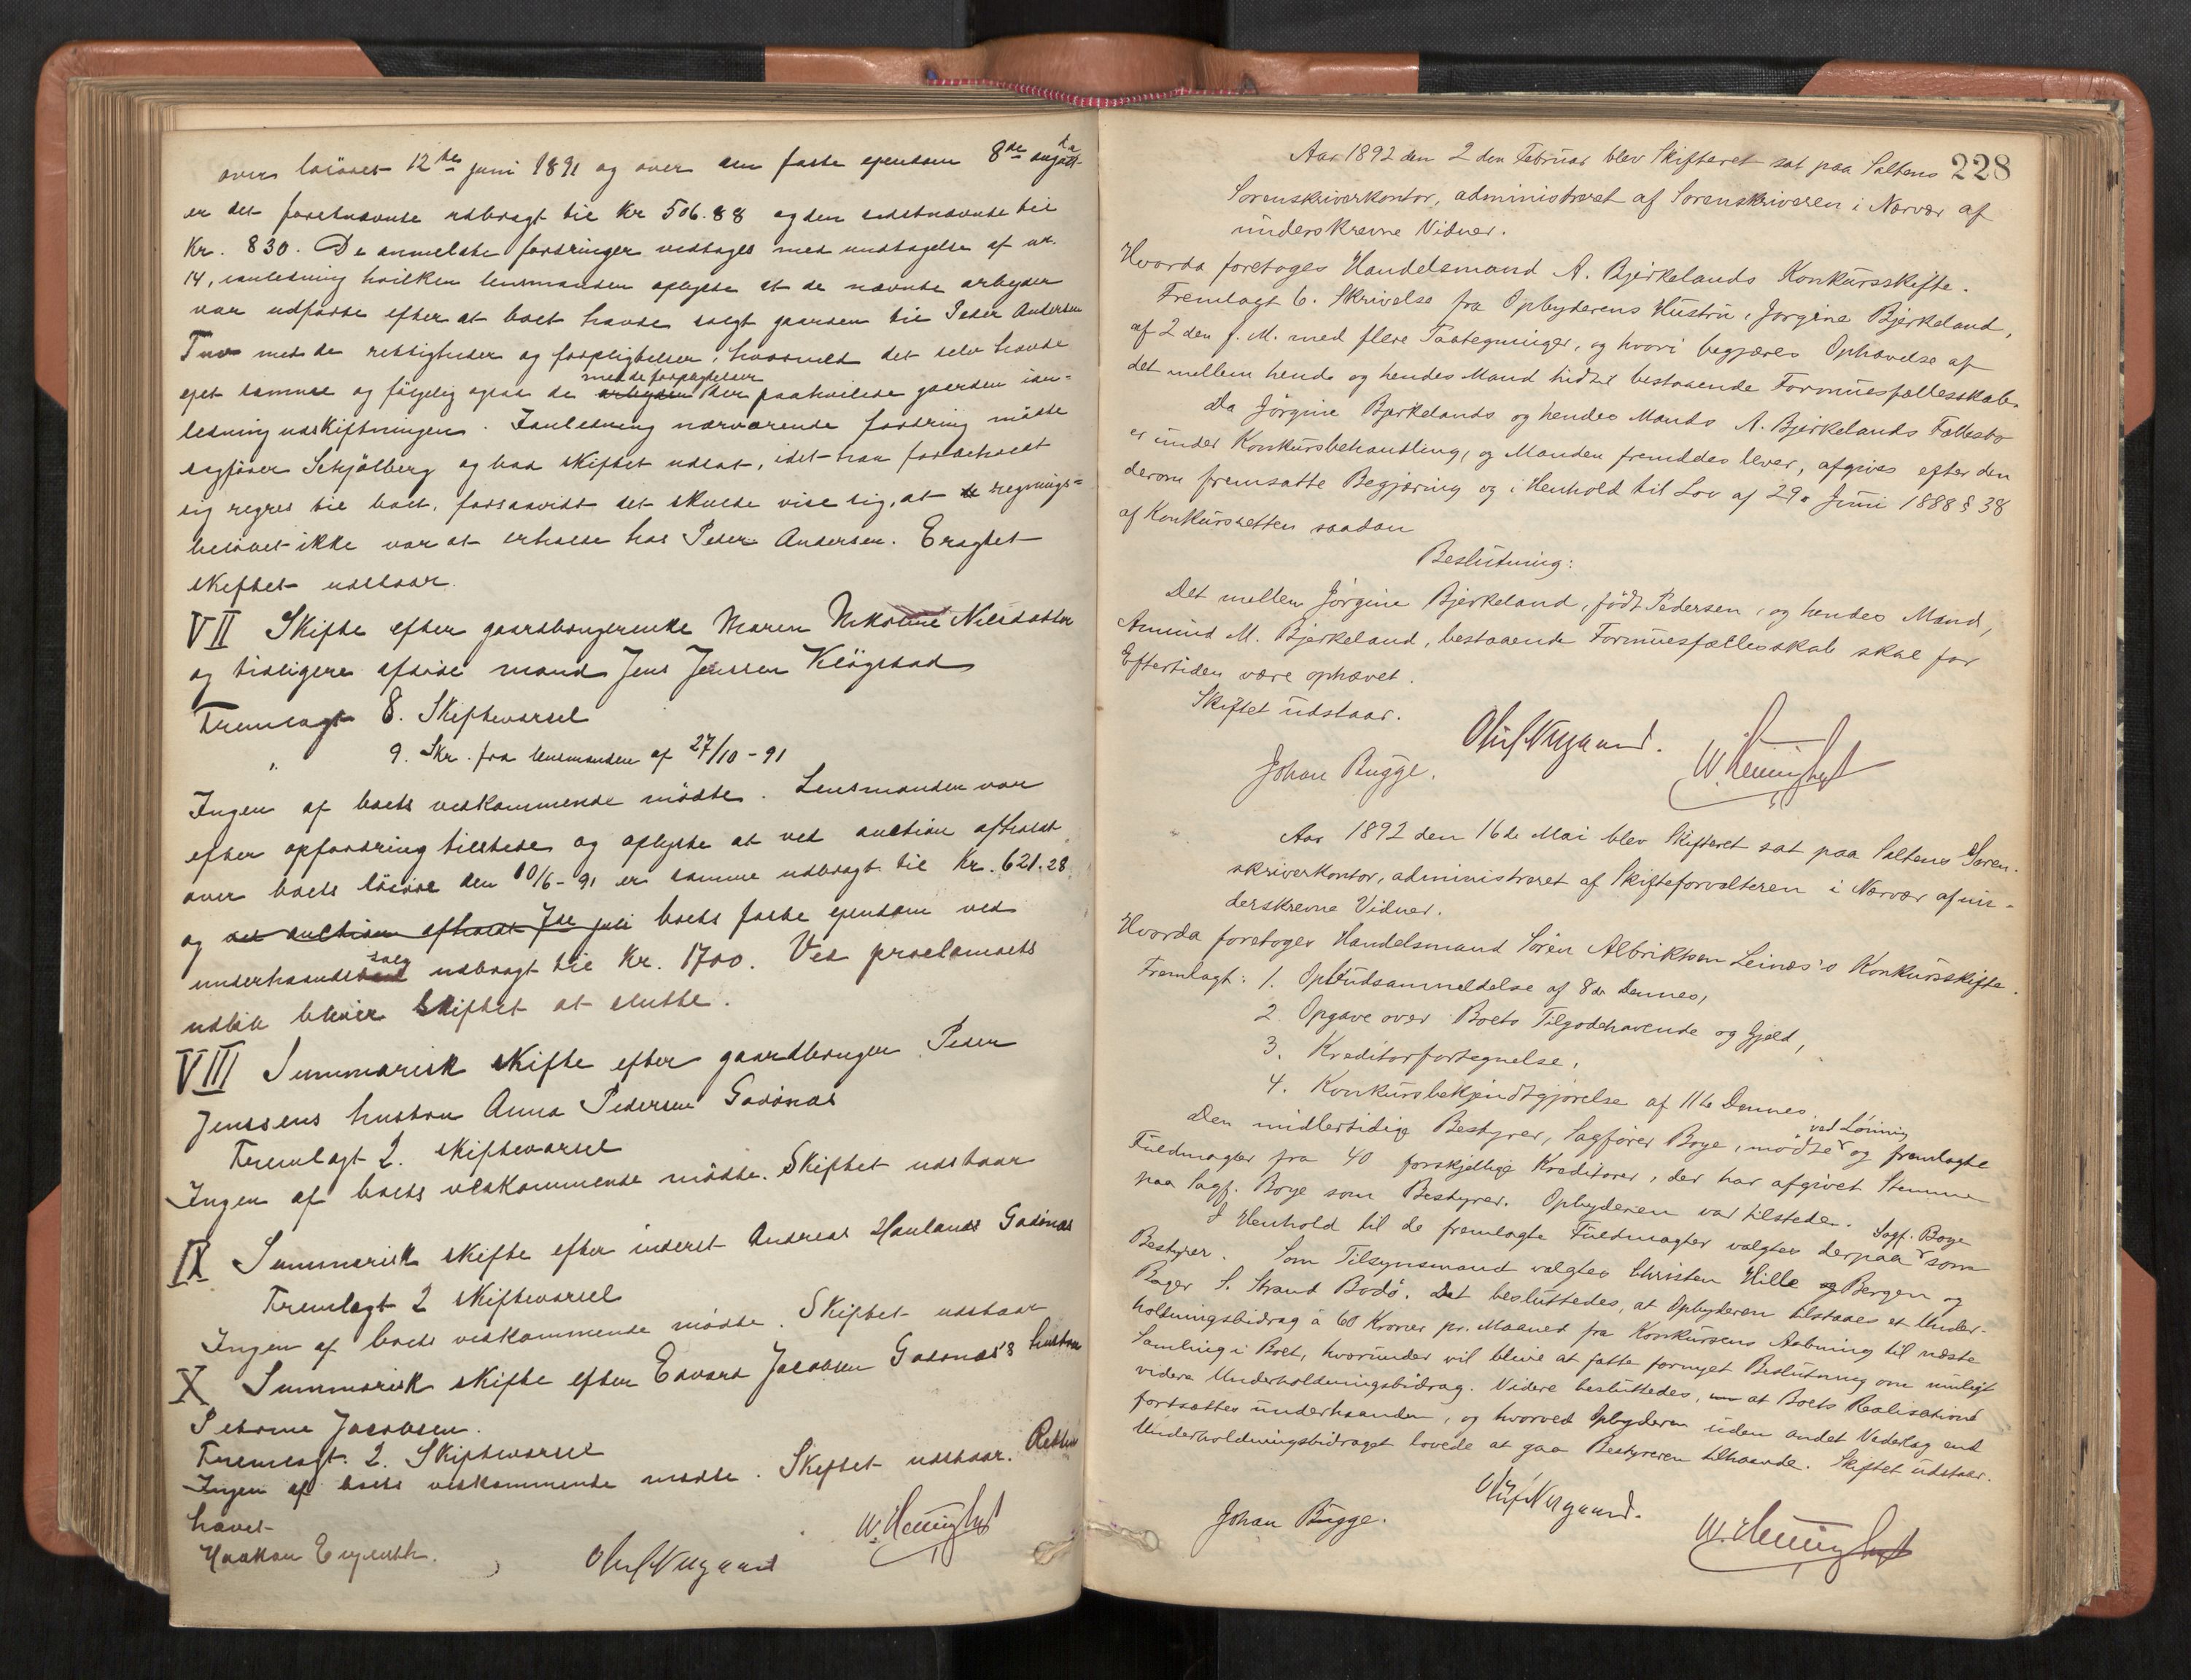 over lösöret 12te juni 1891 og over den faste eiendom 8de august
er det förstnævnte udbragt til Kr 506.88 og den sidstnævnte til
Kr. 830. De anmeldte fordringer vedtages med undtagelse af nr.
14, ianledning hvilken lensmanden oplyste at de nævnte arbeyder
var udförte efter at boet havde solgt gaarden til Peder Andersen
Tuv med de rettigheder og forpligtelser, hvormed det selv havde
eiet samme og fölgelig ogsaa
med de forpligtelser
de arbeyder der paahvilede gaarden ian-
ledning udskiftningen. Ianledning nærværende fordring mödte
sagförer Schjölberg og bad skiftet udsat, idet han forbeholdt
sig regres til boet, forsaavidt det skulde vise sig, at regnings-
belöbet ikke var at erholde hos Peder Andersen. Eragtet
skiftet udstaar.
VII Skifte efter gaardbrugerenke Maren Nikoline Nilsdatter
og tidligere afdöde mand Jens Jenssen Klögstad
Fremlagt 8. Skiftevarsel
" 9. Skr. fra lensmanden af 27/10-91
Ingen af boets vedkommende mödte. Lensmanden var
efter opfordring tilstede og oplyste at ved auction afholdt
over boets lösöre den 10/6-91 er samme udbragt til Kr. 621.28
og ved auction afholdt 7de juli boets faste eiendom ved
underhaands salg udbragt til Kr. 1700. Ved proclamaets
udlöb bliver skiftet at slutte.
VIII Summarisk skifte efter gaardbruger Peder
Jenssens hustru Anna Pedersen Godönæs
Fremlagt 2. skiftevarsel
Ingen af boets vedkommende mödte. Skiftet udstaar
IX Summarisk skifte efter inderst Andreas Hanlands Godönæs
Fremlagt 2 skiftevarsel
Ingen af boets vedkommende mödte. Skiftet udstaar
X Summarisk skifte efter Edvard Jacobsen Godönæs's hustru
Petrine Jacobsen.
Fremlagt. 2. Skiftevarsel
Ingen af boets vedkommende mödte. Skiftet udstaar. Retten
hævet
Oluf Nygaard W. Henninghust
228
Aar 1892 den 2den Februar blev Skifteret sat paa Saltens
Sorenskriverkontor, administreret af Sorenskriveren i Nærvær af
underskrevne Vidner.
Hvorda foretoges Handelsmand A. Bjerkelands Konkursskifte.
Fremlagt 6. Skrivelse fra Opbyderens Hustru, Jørgine Bjerkeland,
af 2den f. M. med flere Paategninger, og hvori begjæres Ophævelse af
det mellem hende og hendes Mand hidtil bestaaende Formuesfællesskab.
Da Jörgine Bjerkelands og hendes Mands A. Bjerkelands Fællesbo
er under Konkursbehandling, og Manden fremdeles lever, afgives efter den
derom fremsatte Begjæring og i Henhold til Lov af 29. Juni 1888 § 38
af Konkursretten saadan
Beslutning:
Det mellem Jørgine Bjerkeland, født Pedersen, og hendes Mand,
Amund M. Bjerkeland, bestaaende Formuesfællesskab skal for
Eftertiden være ophævet.
Skiftet udstaar.
Oluf Nygaard.
Johan Bugge. W. Henninghust
Aar 1892 den 16de Mai blev Skifteret sat paa Saltens Soren-
skriverkontor, administreret af Skifteforvalteren i Nærvær af un-
derskrevne Vidner.
Hvorda foretoges Handelsmand Sören Albriktsen Leinæs's Konkursskifte.
Fremlagt: 1. Opbudsanmeldelse af 8de Dennes,
2. Opgave over Boets Tilgodehavende og Gjeld,
3. Kreditorfortegnelse,
4. Konkursbekjendtgjørelse af 11te Dennes.
Den midlertidige Bestyrer, Sagfører Boye, mødte
ved Lönning
og fremlagte
Fuldmagter fra 40 forskjellige Kreditorer, der har afgivet Stemme
paa Sagf. Boye som Bestyrer. Opbyderen var tilstede.
I Henhold til de fremlagte Fuldmagter valgtes derpaa
Sagf. Boye
som
Bestyrer. Som Tilsynsmænd valgtes Christen Hille Bergen og
Bager S. Strand Bodö. Det besluttedes, at Opbyderen tilstaaes et Under-
holdningsbidrag à 60 Kroner pr. Maaned fra Konkursens Aabning til næste
Samling i Boet, hvorunder vil blive at fatte fornyet Beslutning om muligt
videre Underholdningsbidrag. Videre besluttedes, at Boets Realisation
fortsættes underhaanden, og hvorved Opbyderen uden andet Vederlag end
Underholdningsbidraget lovede at gaa Bestyreren tilhaande. Skiftet udstaar.
Oluf Nygaard.
Johan Bugge. W. Henninghust